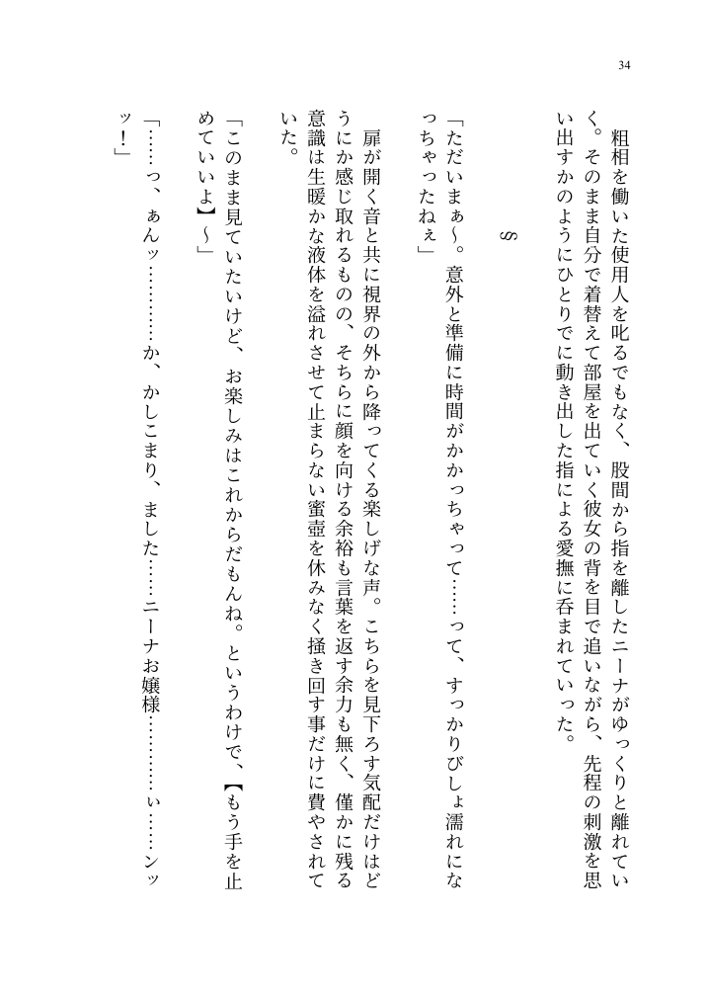 34
　粗相を働いた使用人を叱るでもなく、股間から指を離したニーナがゆっくりと離れてい
く。そのまま自分で着替えて部屋を出ていく彼女の背を目で追いながら、先程の刺激を思
い出すかのようにひとりでに動き出した指による愛撫に呑まれていった。
§
「ただいまぁ～。意外と準備に時間がかかっちゃって……って、すっかりびしょ濡れにな
っちゃったねぇ」
　扉が開く音と共に視界の外から降ってくる楽しげな声。こちらを見下ろす気配だけはど
うにか感じ取れるものの、そちらに顔を向ける余裕も言葉を返す余力も無く、僅かに残る
意識は生暖かな液体を溢れさせて止まらない蜜壺を休みなく掻き回す事だけに費やされて
いた。
「このまま見ていたいけど、お楽しみはこれからだもんね。というわけで、【もう手を止
めていいよ】～」
「……っ、ぁんッ…………か、かしこまり、ました……ニーナお嬢様…………ぃ……ンッ
ッ！」